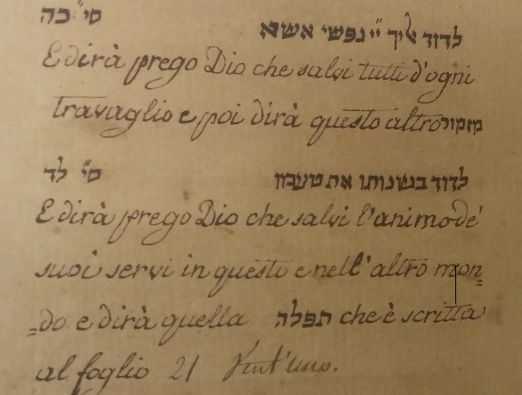 לדוד אליך יי נפשי אשא סי׳ כה
E dirà prego Dio che salvi tutti d'ogni
travaglio e poi dirà questo altro מזמור
לדוד בשנותו את טעמו סי׳ לד
E dirà prego Dio che salvi l'anime de'
suoi servi in questo e nell'altro mon=
=do e dirà quella תפלה che è scritta
al foglio 21 Vent'uno.